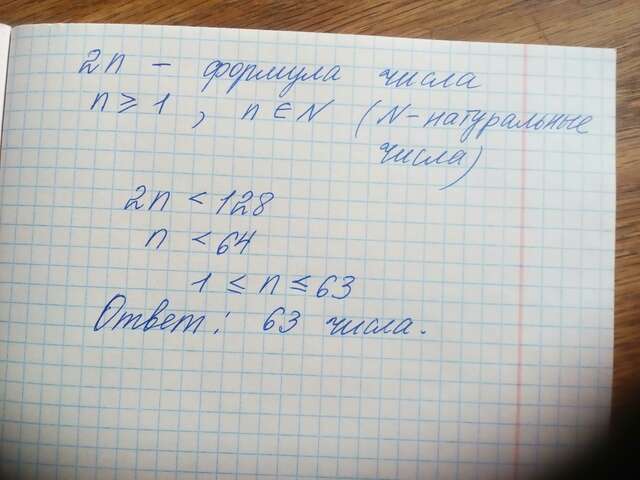 2n – формула числа
n ≥ 1 , n ∈ N (N-натуральные
числа)
2n < 128
n < 64
1 ≤ n ≤ 63
Ответ: 63 числа.